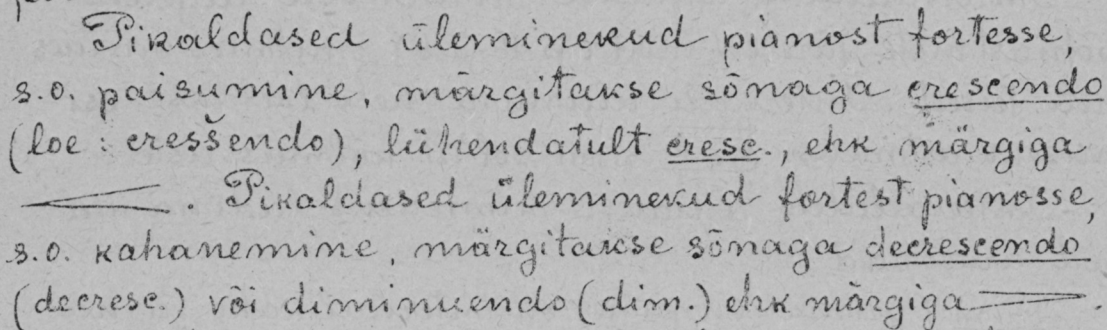 Pikaldased üleminekud pianost fortesse,
s.o. paisumine, märgitakse sõnaga crescendo
(loe: cresšendo), lühendatult cresc., ehk märgiga
<. Pikaldased üleminekud fortest pianosse,
s.o. kahanemine, märgitakse sõnaga decrescendo
(decresc.) või diminuendo (dim.) ehk märgiga >.